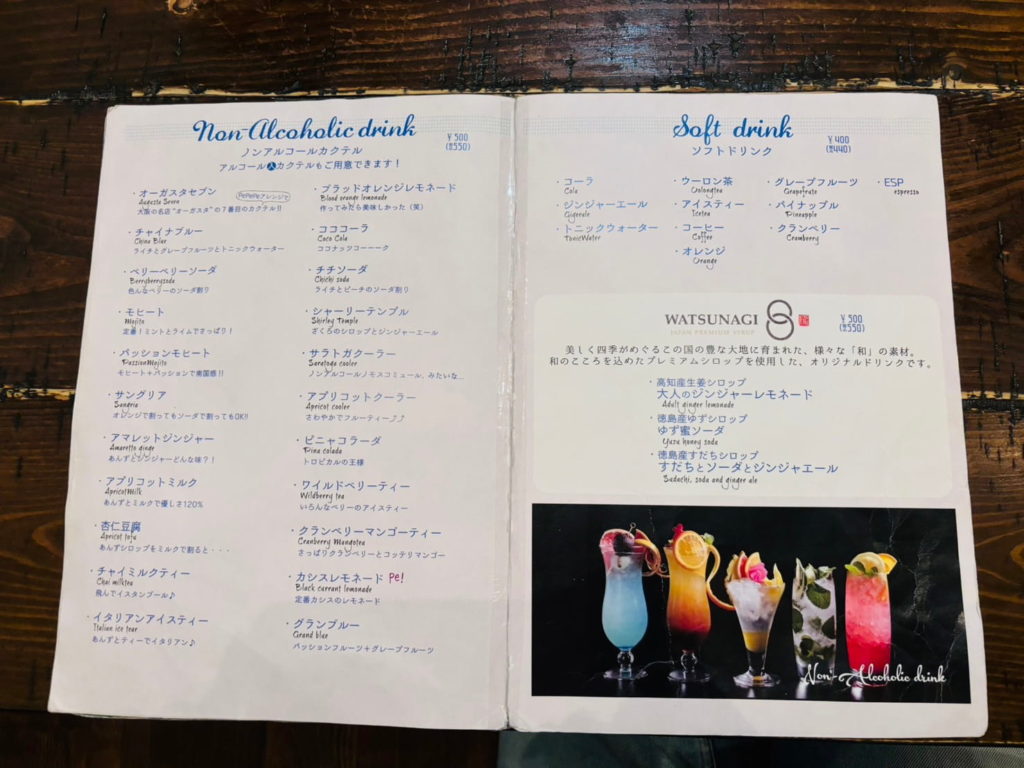 Non-Alcoholic drink
¥500
(税550)
ノンアルコールカクテル
アルコール入カクテルもご用意できます！
・オーガスタセブン
PePePeアレンジで
Auguste Seven
大阪の名店"オーガスタ"の7番目のカクテル!!
・チャイナブルー
China Blue
ライチとグレープフルーツとトニックウォーター
・ベリーベリーソーダ
Berryberrysoda
色んなベリーのソーダ割り
・モヒート
Mojito
定番！ミントとライムでさっぱり！
・パッションモヒート
PassionMojito
モヒート+パッションで南国感!!
・サングリア
Sangria
オレンジで割ってもソーダで割ってもOK!!
・アマレットジンジャー
Amaretto ginge
あんずとジンジャーどんな味？！
・アプリコットミルク
ApricotMilk
あんずとミルクで優しさ120%
・杏仁豆腐
Apricot tofu
あんずシロップをミルクで割ると・・・
・チャイミルクティー
Chai milktea
飛んでイスタンブール♪
・イタリアンアイスティー
Italian ice tear
あんずとティーでイタリアン♪
・ブラッドオレンジレモネード
Blood orange lemonade
作ってみたら美味しかった（笑）
・ココココーラ
Coco Cola
ココナッツコーーーク
・チチソーダ
Chichi soda
ライチとピーチのソーダ割り
・シャーリーテンプル
Shirley Temple
ざくろのシロップとジンジャーエール
・サラトガクーラー
Saratoga cooler
ノンアルコールノモスコミュール、みたいな...
・アプリコットクーラー
Apricot cooler
さわやかでフルーティー♪♪
・ピニャコラーダ
Pina colada
トロピカルの王様
・ワイルドベリーティー
Wildberry tea
いろんなベリーのアイスティー
・クランベリーマンゴーティー
Cranberry Mangotea
さっぱりクランベリーとコッテリマンゴー
・カシスレモネード Pe!
Black currant lemonade
定番カシスのレモネード
・グランブルー
Grand blue
パッションフルーツ+グレープフルーツ
Soft drink
¥400
(税440)
ソフトドリンク
・コーラ
Cola
・ジンジャーエール
Gigerale
・トニックウォーター
TonicWater
・ウーロン茶
Oolongtea
・アイスティー
Icetea
・コーヒー
Coffee
・オレンジ
Orange
・グレープフルーツ
Grapefrute
・パイナップル
Pineapple
・クランベリー
Cramberry
・ESP
espresso
WATSUNAGI
JAPAN PREMIUM SYRUP
¥500
(税550)
美しく四季がめぐるこの国の豊な大地に育まれた、様々な「和」の素材。
和のこころを込めたプレミアムシロップを使用した、オリジナルドリンクです。
・高知産生姜シロップ
大人のジンジャーレモネード
Adult ginger lemonade
・徳島産ゆずシロップ
ゆず蜜ソーダ
Yuzu honey soda
・徳島産すだちシロップ
すだちとソーダとジンジャエール
Sudachi, soda and ginger ale
Non-Alcoholic drink